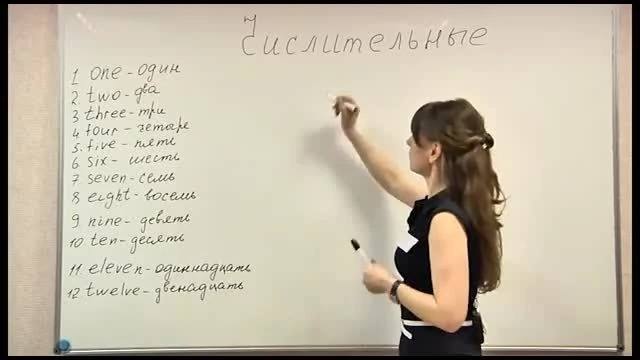 Числительные
1 one - один
2. two - два
3 three - три
4 four - четыре
5. five - пять
6 six - шесть
7 seven - семь
8 eight - восемь
9 nine - девять
10 ten - десять
11 eleven - одиннадцать
12 twelve - двенадцать